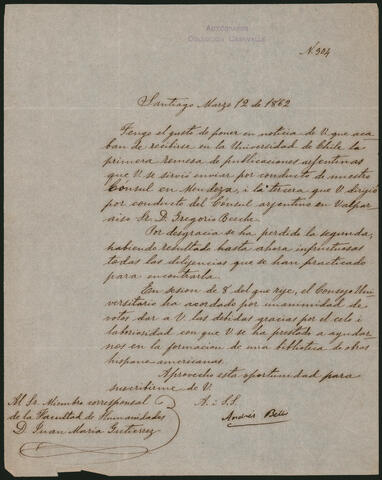 AUTÓGRAFOS
COLECCIÓN CARAVALLE
N. 304
Santiago Marzo 12 de 1862
Tengo el gusto de poner en noticia de V. que aca
ban de recibirse en la Universidad de Chile la
primera remesa de publicaciones arjentinas
que V. se sirvió enviar por conducto de nuestro
Cónsul en Mendoza, i la tercera que V. dirijió
por conducto del Cónsul arjentino en Valpar
aiso Sr. D. Gregorio Beeche.
Por desgracia se ha perdido la segunda,
habiendo resultado hasta ahora infructuosas
todas las dilijencias que se han practicado
para encontrarla.
En sesion de 8 del que rije, el Consejo Uni-
versitario ha acordado por unanimidad de
votos dar a V. las debidas gracias por el celo i
laboriosidad con que V. se ha prestado a ayudar-
nos en la formacion de una biblioteca de obras
hispano americanas.
Aprovecho esta oportunidad para
suscribirme de V.
A. i S.S.
Andrés Bello
Al Sr. Miembro corresponsal
de la Facultad de Humanidades
D. Juan Maria Gutierrez